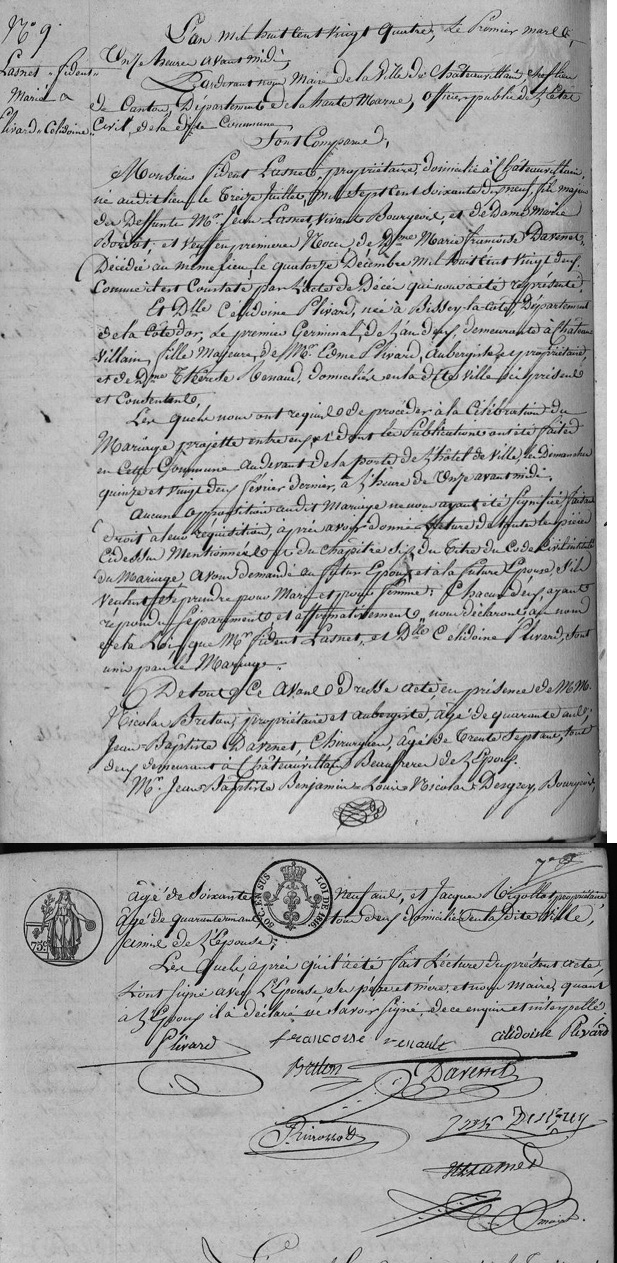 N.o 9
Lasnet - fident -
Marié a
Plivard - Célidoine
L'an mil huit cent vingt quatre, Le Premier mars,
Onze heures avant midi,
Pardevant nous Maire de la Ville de Châteauvillain chef lieu
de Canton, Département de la haute Marne, officier public de L'Etat
Civil, de la dite Commune
Sont Comparus,
Monsieur fident Lasnet, propriétaire, domicilié à Châteauvillain,
né audit lieu, le treize Juillet, mil sept cent soixante dix neuf, fils majeur
de Deffunts Mr. Jean Lasnet, vivant Bourgeois, et de Dame Marie
et Veuf en premieres Noces, de Dme Marie françoise Davenet,
Décédée au même lieu, le quatorze Décembre mil huit cent vingt deux,
Comme il est Constaté par L'acte de Décès qui nous a été représenté,
Et Dlle Célidoine Plivard, née à Bissey la Côte, Département
de la Côte d'or, Le premier Germinal, de L'an deux, demeurante à Château
Villain, fille Majeure, de Mr. Edme Plivard, Aubergiste et propriétaire,
et de Dme Thérèse Renaud, domiciliés en la dite Ville ici présents
et Consentants,
Les quels nous ont requis de procéder à la Célébration du
Mariage projetté entre eux et dont les Publications ont été faites
en cette Commune audevant de la porte de L'hôtel de Ville, les Dimanches
quinze et vingt deux février dernier, à L'heure de Onze avant midi.
Aucune opposition audit Mariage ne nous ayant été signifiée, faisant
droit à leur réquisition, après avoir donné lecture de toutes les pièces
Cidessus Mentionnées et du chapitre six du titre du Code Civil intitulé
du Mariage, avons demandé au futur Epoux et à la future Epouse, s'ils
veulent se prendre pour Mari et pour femme; Chacun d'eux ayant
répondu séparément et affirmativement, nous déclarons au nom
de la Loi, que Mr. fident Lasnet, et Dlle Célidoine Plivard, sont
unis par le Mariage.
De tout Ce avons dressé acte, en présence de MM.
Nicolas Breton, propriétaire et aubergiste, âgé de quarante ans,
Jean Baptiste Davenet, Chirurgien, âgé de trente sept ans, tous
deux demeurant à Châteauvillain Beaufreres de L'Epoux.
Mr. Jean Baptiste Benjamin Louis Nicolas Desgrey, Bourgeois,
âgé de Soixante Neuf ans, et Jacques Rigollot propriétaire
âgé de quarante tous deux domiciliés en la dite Ville,
amis de L'Epouse;
Les quels après qu'il a été fait Lecture du présent acte,
L'ont signé avec L'Epouse, ses père et mère, et nous Maire, quant
à L'Epoux il a déclaré ne savoir signer, de ce enquis et interpellé.
50 C. EN SUS
LOI DE 1816
75c
Plivard
francoise renault
célidoine Plivard
Breton
Davenet
Desgrey
maire